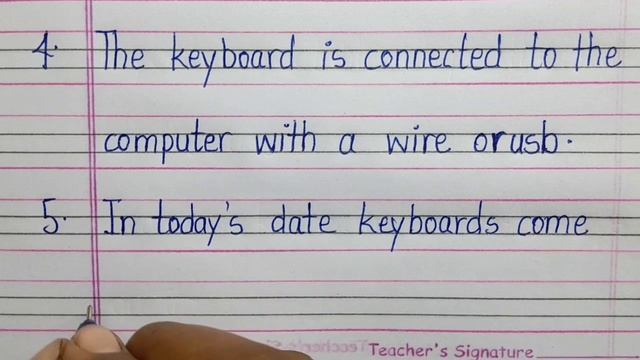 4. The keyboard is connected to the
computer with a wire or usb.
5. In today's date keyboards come
Teacher's Signature